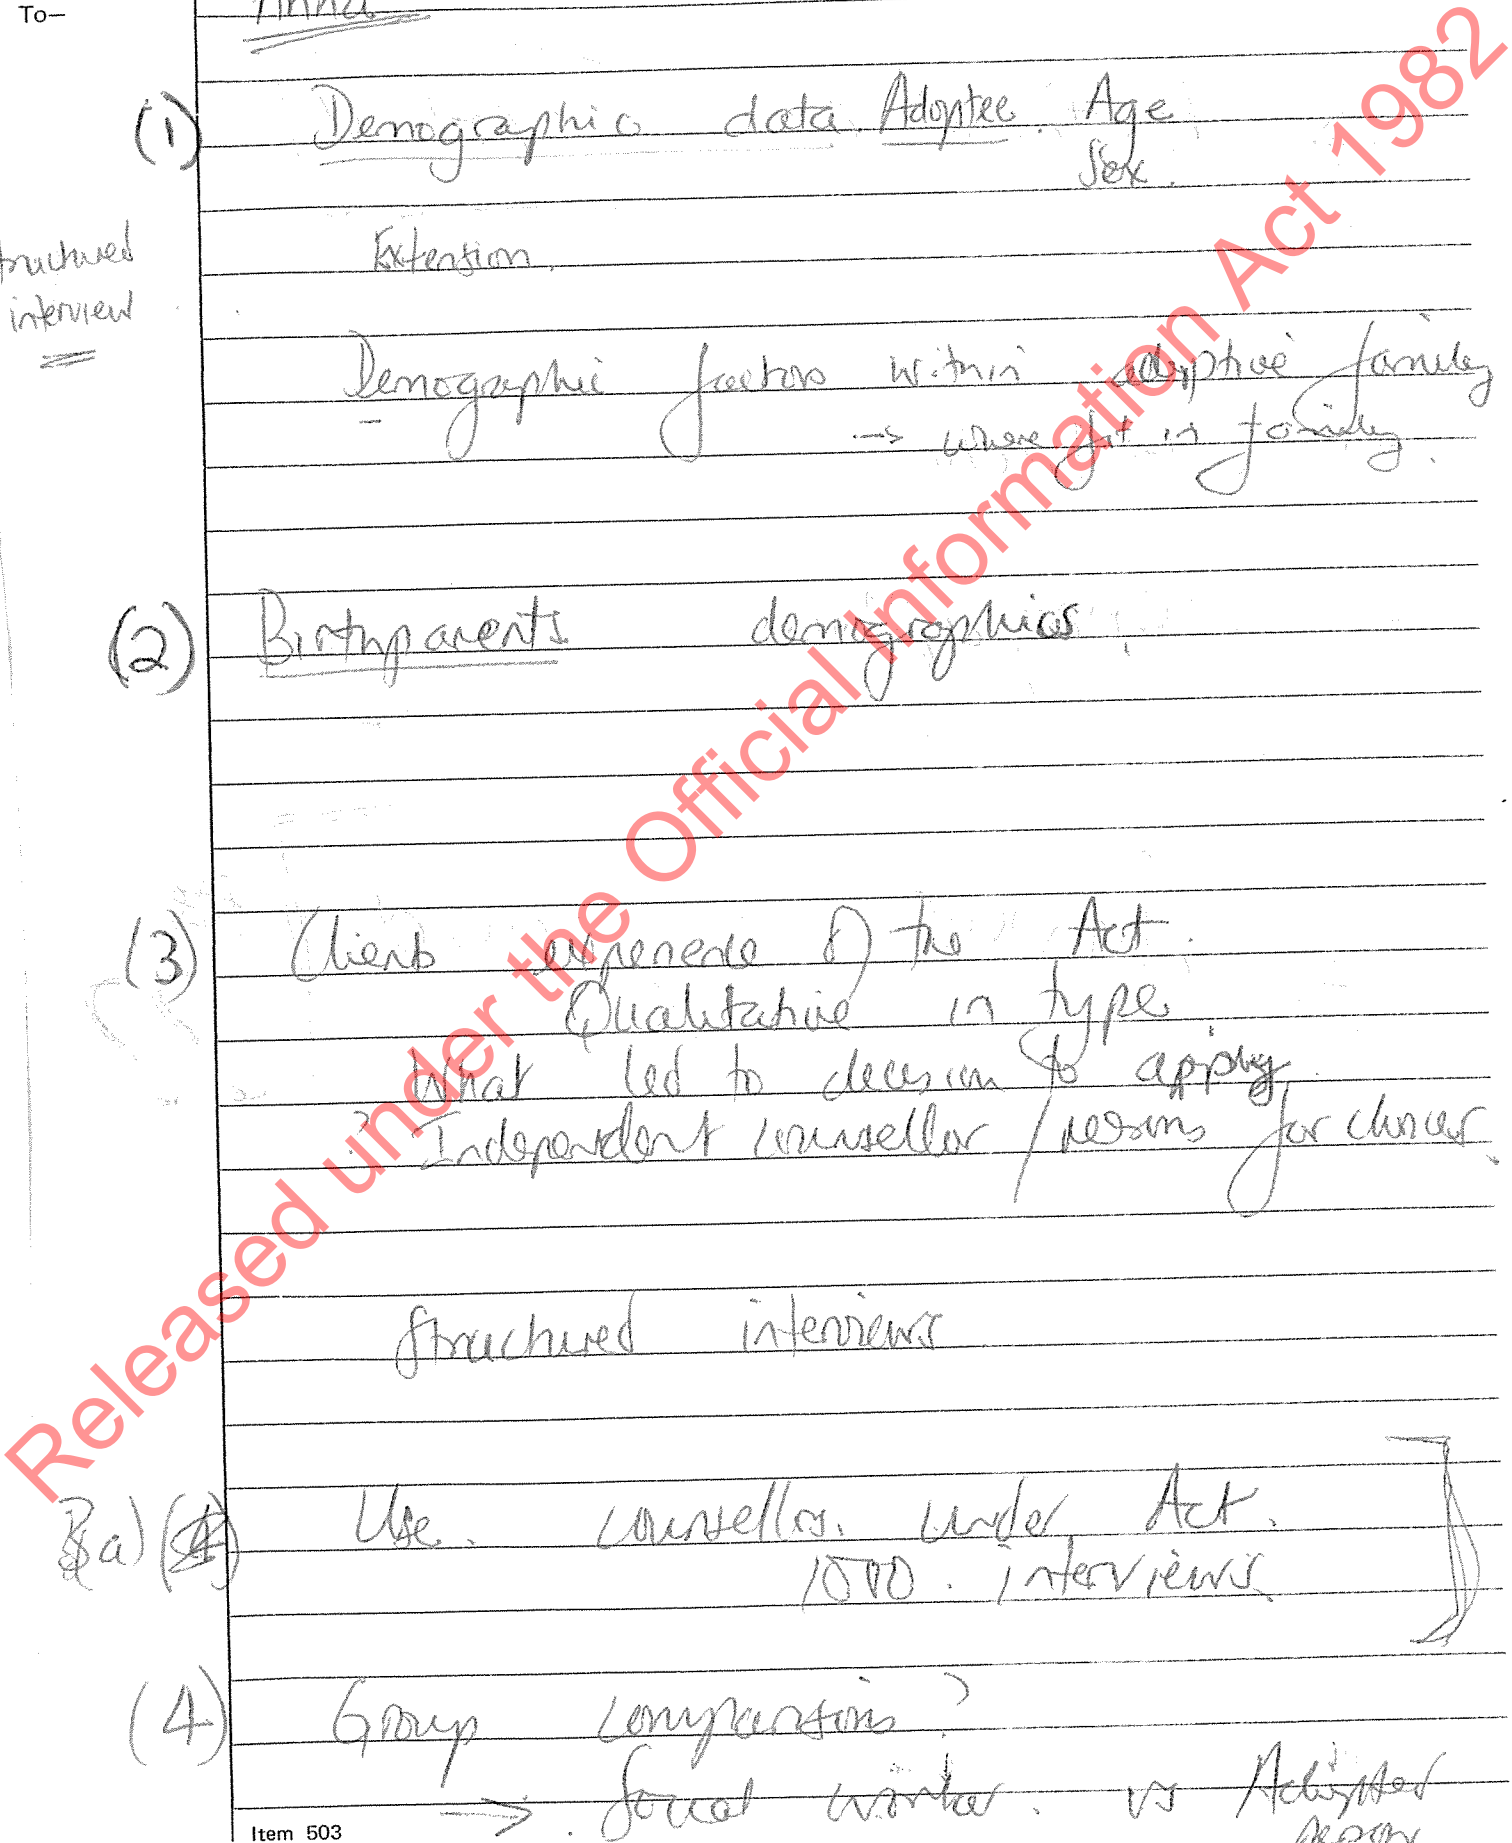 To—
Anna
(1) Demographic data. Adoptee. Age
Sex.
Extension.
structured
interview
Demographic factors within adoptive family
→ where fit in family.
(2) Birthparents demographics.
(3) Clients experience of the Act.
Qualitative in type.
What led to decision to apply.
? Independent counsellor / reasons for choices.
Structured interviews
(a) Use. counsellors. under Act.
1000. interviews.
(4) Group comparisons?
→ Social worker. vs Adopted
person
Item 503
Released under the Official Information Act 1982